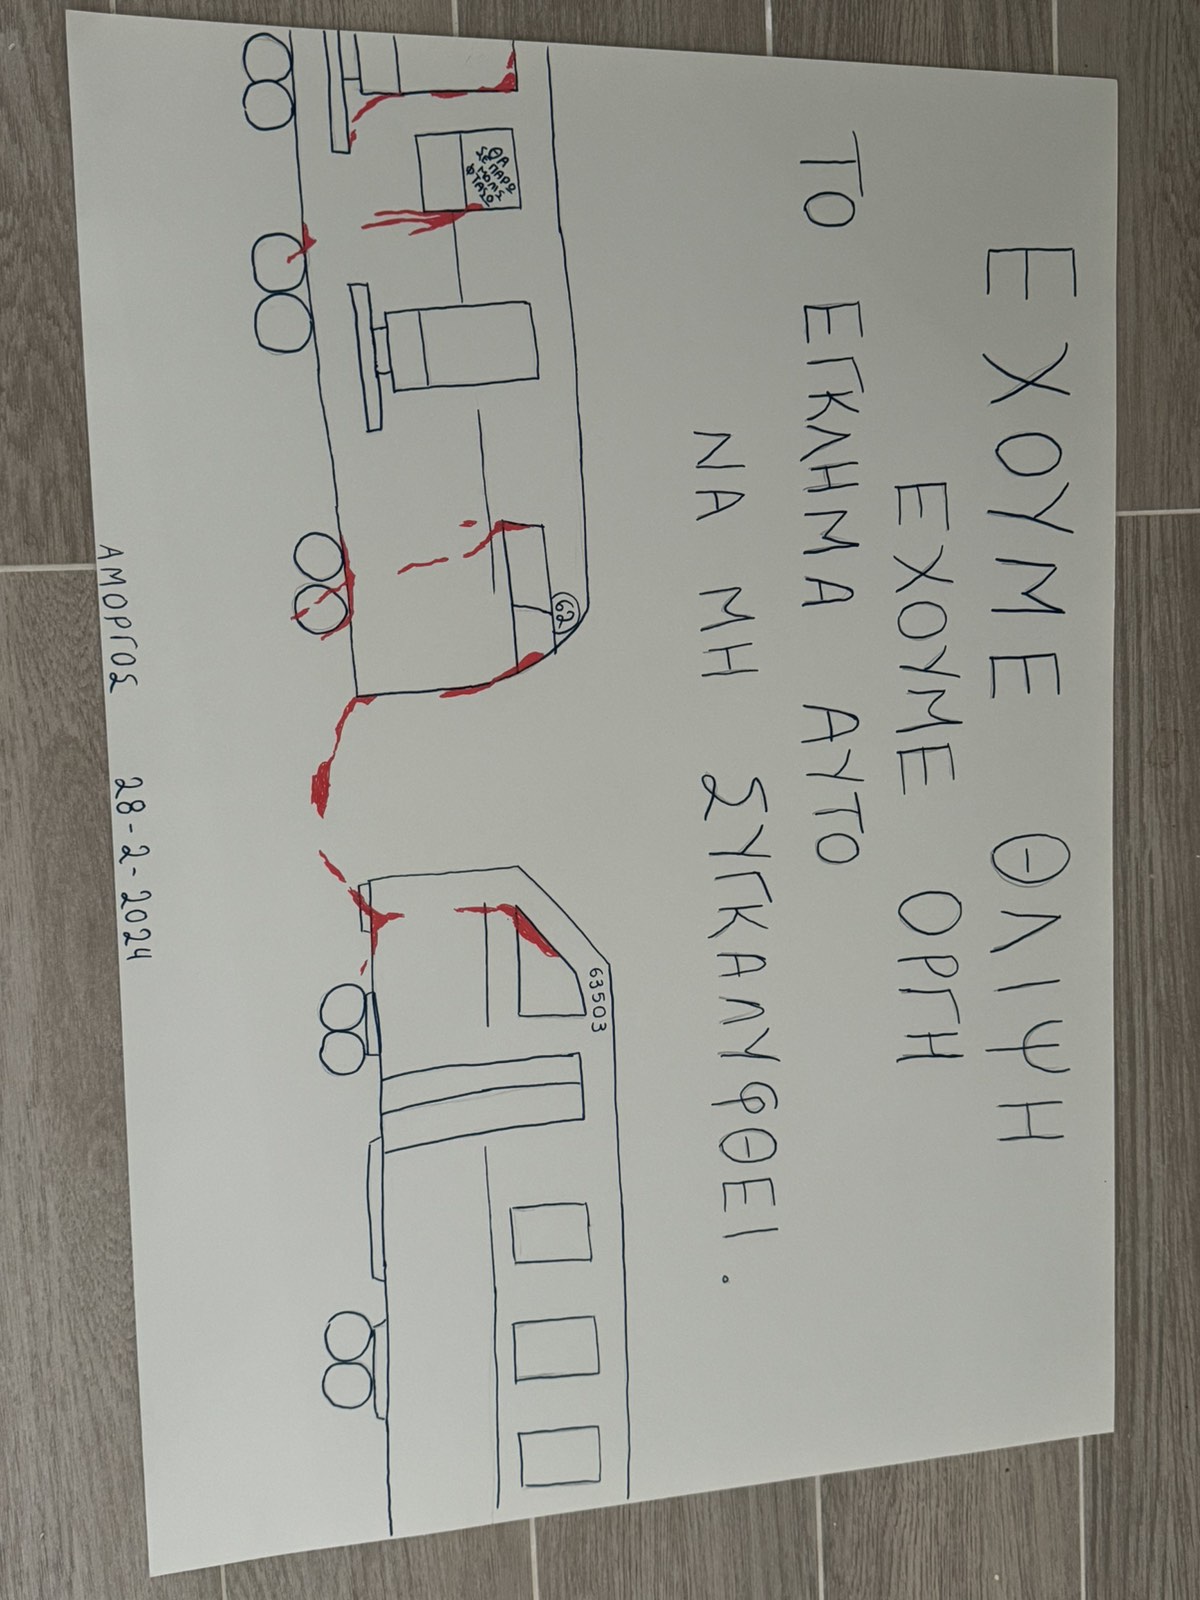 ΕΧΟΥΜΕ ΘΛΙΨΗ
ΕΧΟΥΜΕ ΟΡΓΗ
ΤΟ ΕΓΚΛΗΜΑ ΑΥΤΟ
ΝΑ ΜΗ ΣΥΓΚΑΛΥΦΘΕΙ.
ΘΑ
ΣΕ ΠΑΡΩ
ΜΟΛΙΣ
ΦΤΑΣΩ
62
63503
ΑΜΟΡΓΟΣ 28-2-2024